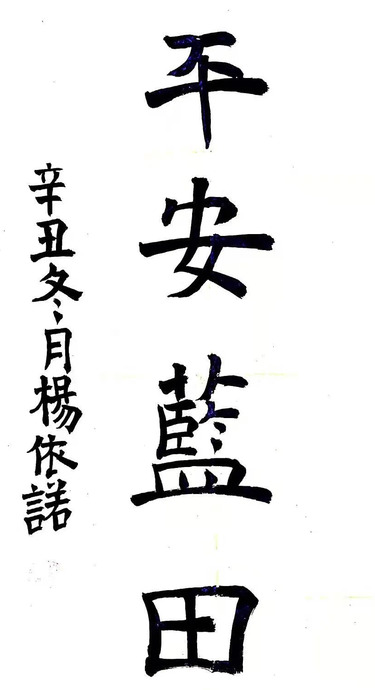 平安藍田
辛丑冬月楊依諾